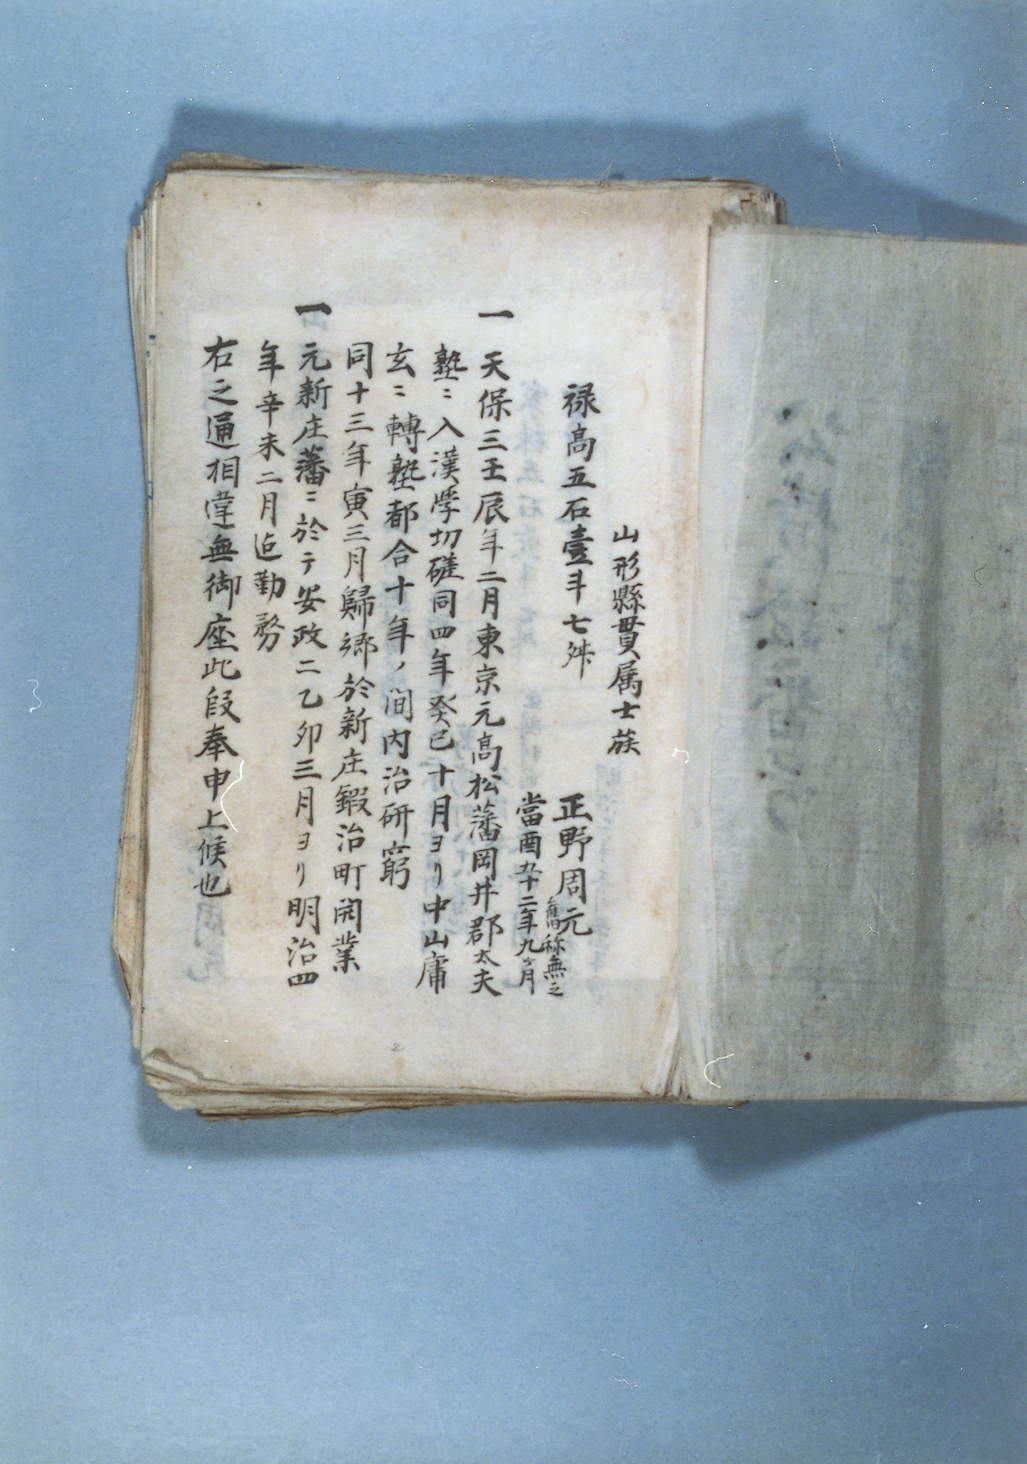 山形縣貫属士族
禄高五石壹斗七舛
正野周元
舊称無之
當酉五十二年九ヶ月
一 天保三壬辰年二月東京元高松藩岡井郡太夫
塾ニ入漢学切磋同四年癸巳十月ヨリ中山庸
玄ニ轉塾都合十年ノ間内治研窮
同十三年寅三月歸郷於新庄鍜治町開業
一 元新庄藩ニ於テ安政二乙卯三月ヨリ明治四
年辛未二月迠勤務
右之通相違無御座此段奉申上候也
2